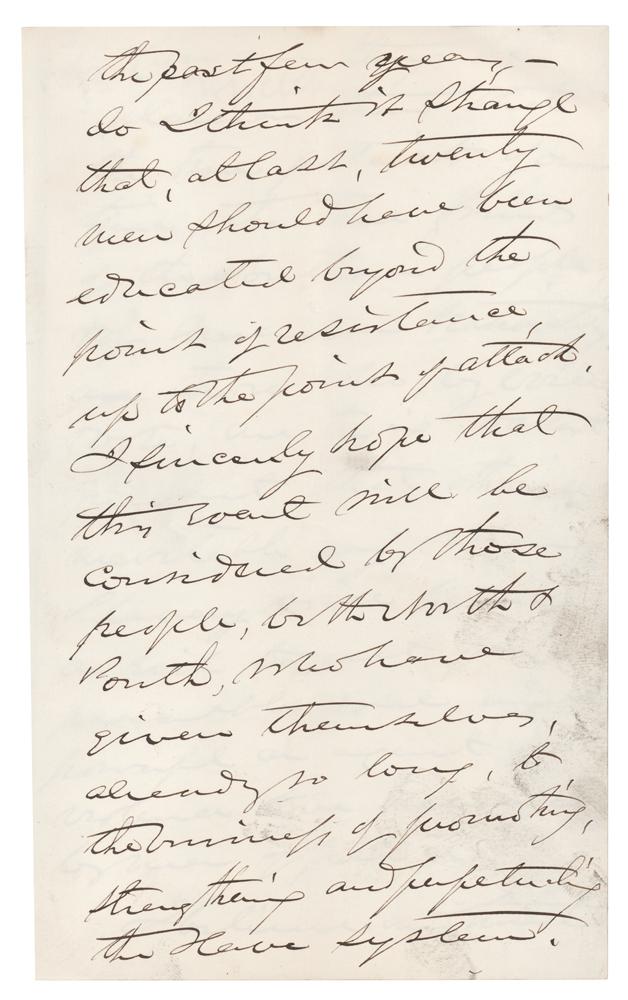 the past few years, —
do I think it strange
that, at last, twenty
men should have been
educated beyond the
point of resistance,
up to the point of attack.
I sincerely hope that
this event will be
considered by those
people, both North &
South, who have
given themselves,
already so long, to
the business of promoting,
strengthening and perpetuating
the slave system.